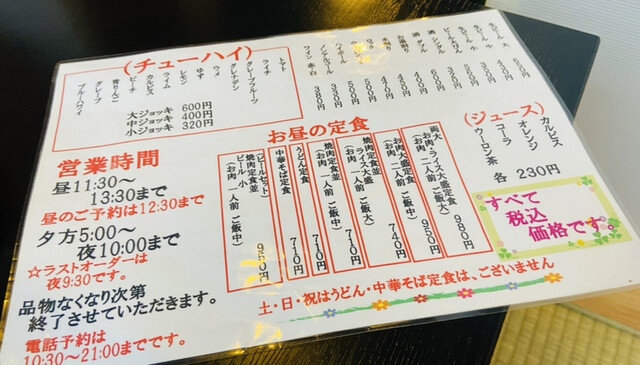 (チューハイ)
トマト
ライチ
グレープフルーツ
グレナデン
ウメ
ゆず
レモン
ライム
カルピス
ピーチ
青りんご
グレープ
ブルーハワイ
大ジョッキ 600円
中ジョッキ 400円
小ジョッキ 320円
生ビール 大
生ビール 中
生ビール 小
ノンアルコール
ワイン 赤・白
(ジュース)
カルピス
オレンジ
コーラ
ウーロン茶
各 230円
すべて
税込
価格です。
お昼の定食
両大
お肉・ライス大盛定食
(お肉 二人前 ご飯大)
980円
お肉大盛定食
(お肉 二人前 ご飯中)
950円
740円
焼肉定食並
ライス大盛
(お肉 一人前 ご飯大)
焼肉定食並
(お肉 一人前 ご飯中)
710円
うどん定食
710円
中華そば定食
710円
(ビールセット)
焼肉定食並
ビール 小
(お肉 一人前 ご飯中)
土・日・祝はうどん・中華そば定食は、ございません
営業時間
昼11:30~
13:30まで
昼のご予約は12:30まで
夕方5:00~
夜10:00まで
☆ラストオーダーは
夜9:30です。
品物なくなり次第
終了させていただきます。
電話予約は
10:30~21:00までです。